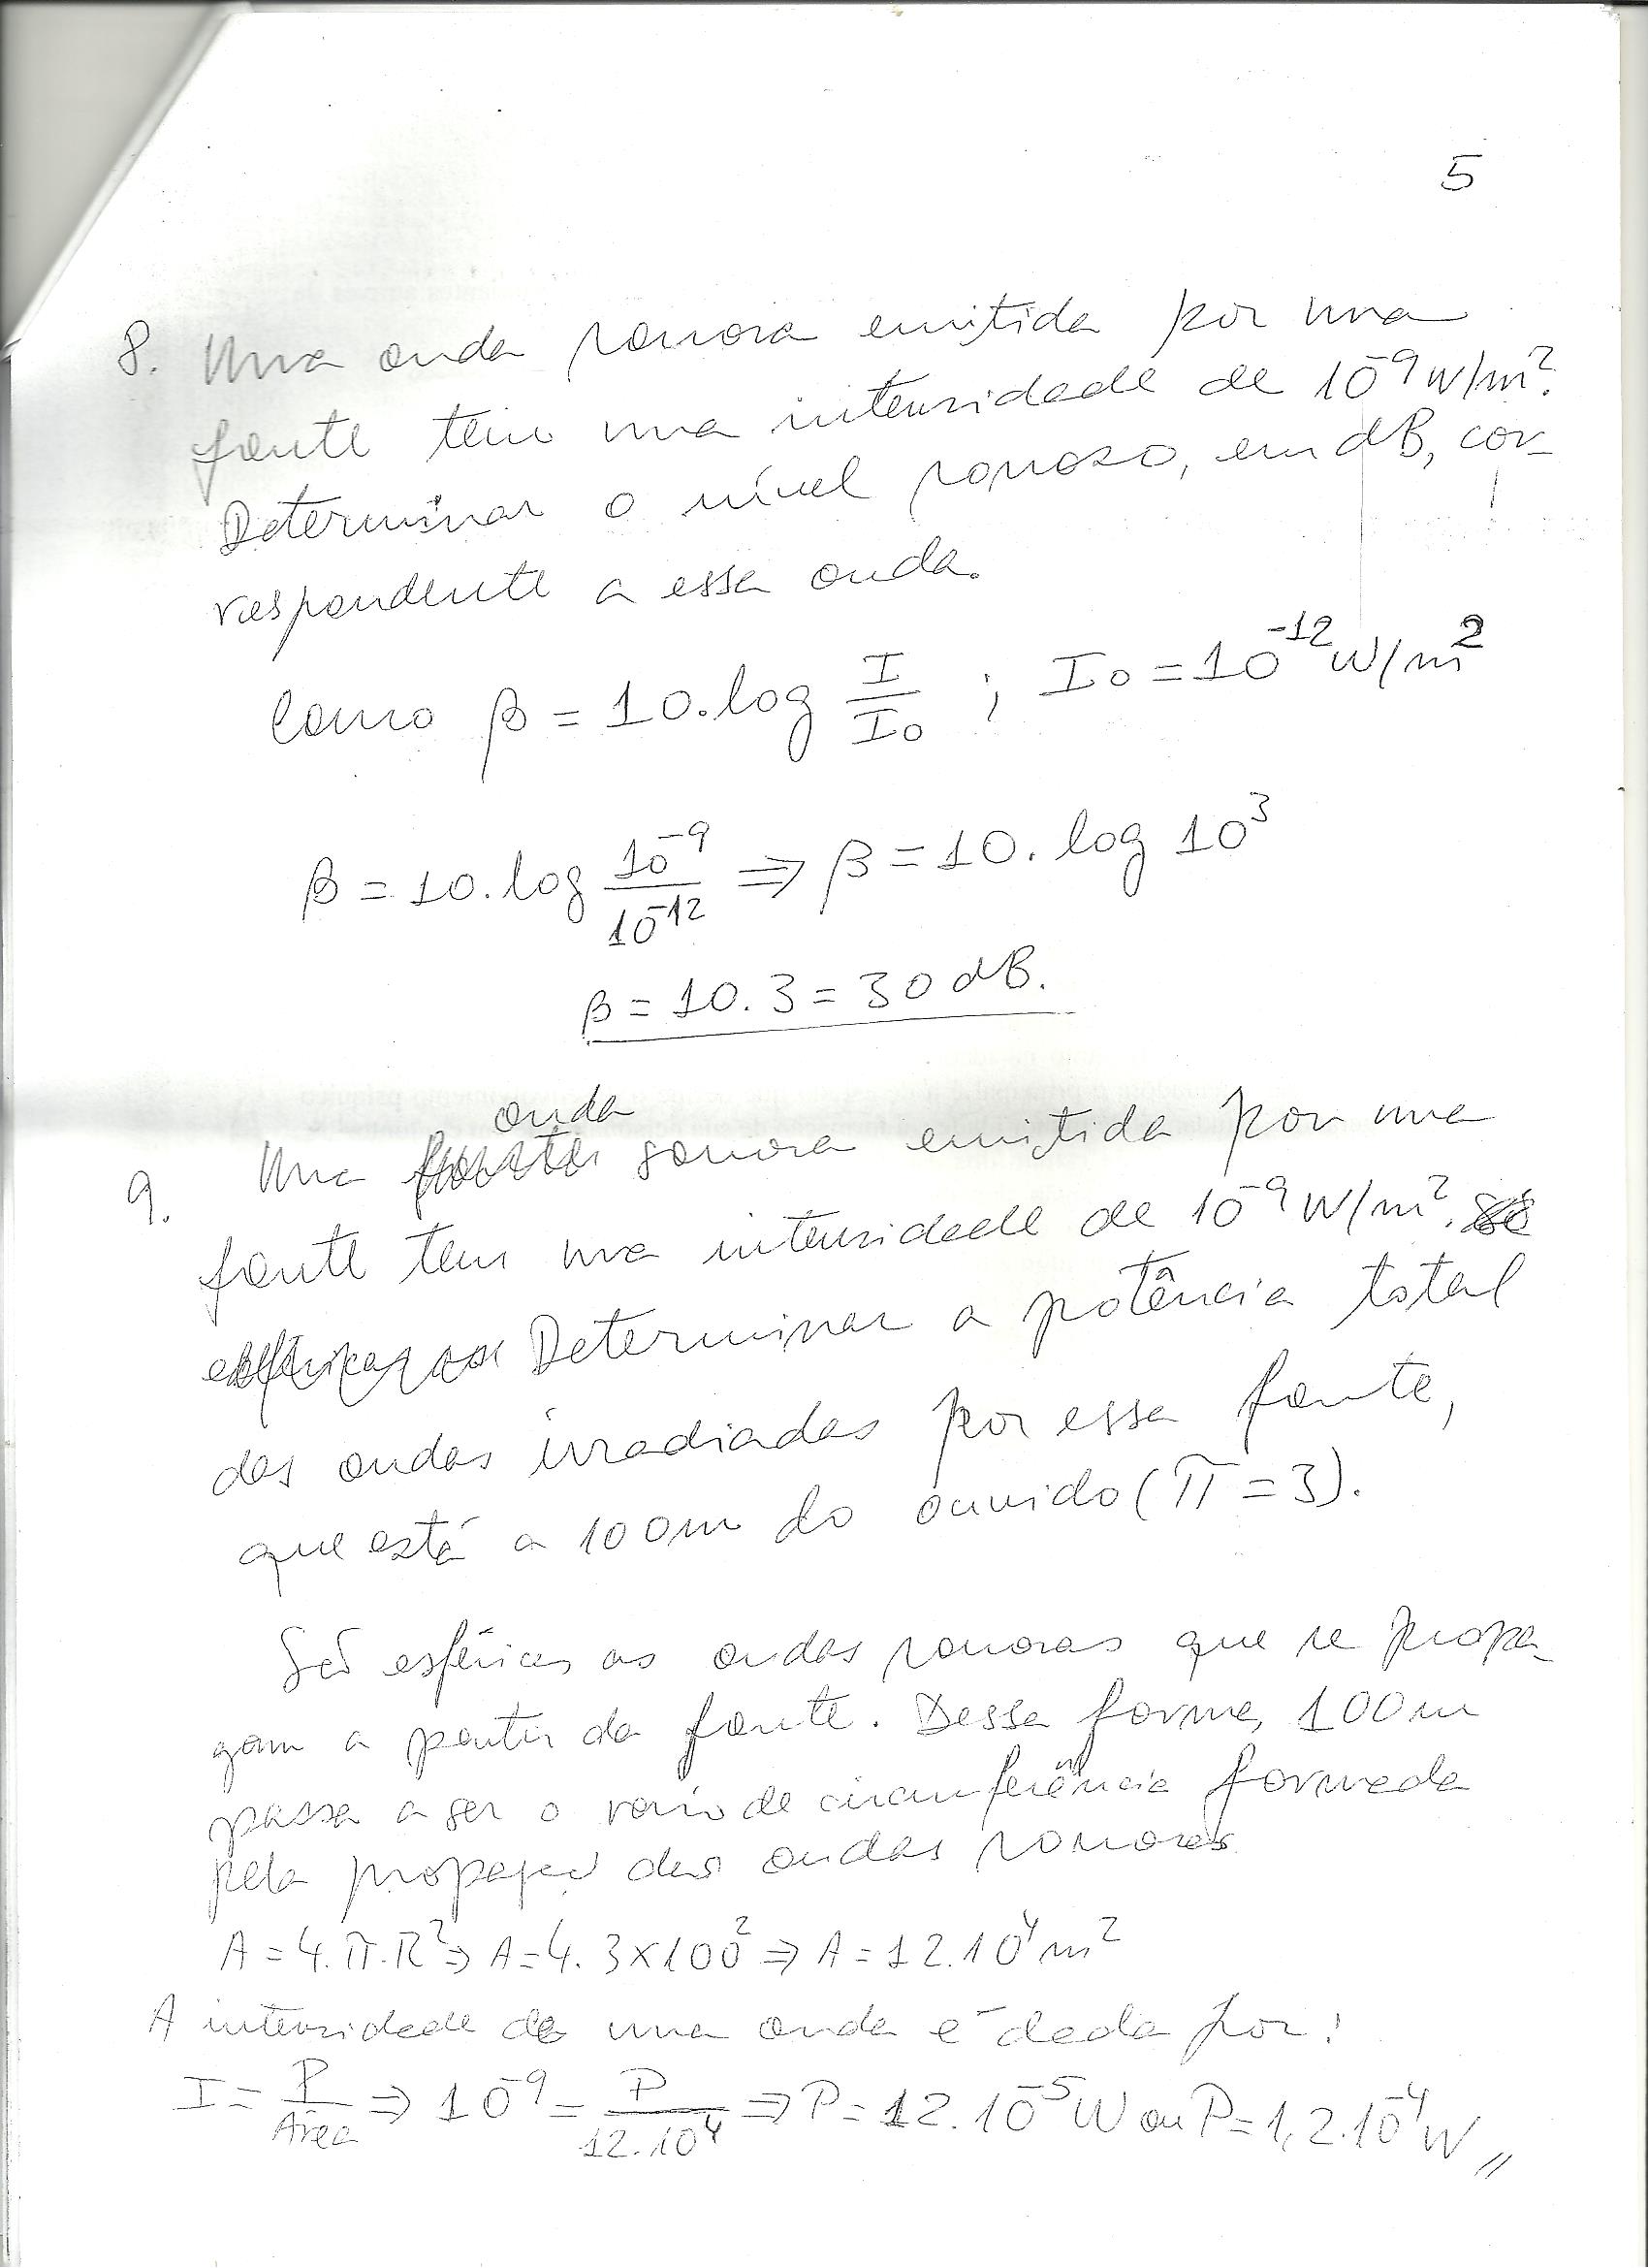 5
8. Uma onda sonora emitida por uma
fonte tem uma intensidade de 10⁻⁹ W/m².
Determinar o nível sonoro, em dB, cor-
respondente a essa onda.
Como β = 10.log I/I₀ ; I₀ = 10⁻¹² W/m²
β = 10.log 10⁻⁹/10⁻¹² ⇒ β = 10.log 10³
β = 10.3 = 30 dB.
onda
9. Uma sonora emitida por uma
fonte tem uma intensidade de 10⁻⁹ W/m².
Determinar a potência total
das ondas irradiadas por essa fonte,
que está a 100m do ouvido (π = 3).
São esféricas as ondas sonoras que se propa-
gam a partir da fonte. Dessa forma, 100m
passa a ser o raio de circunferência formada
pela propagação das ondas sonoras
A = 4.π.R² ⇒ A = 4.3x100² ⇒ A = 12.10⁴ m²
A intensidade de uma onda é dada por:
I = P/Área ⇒ 10⁻⁹ = P/12.10⁴ ⇒ P = 12.10⁻⁵ W ou P = 1,2.10⁻⁴ W //